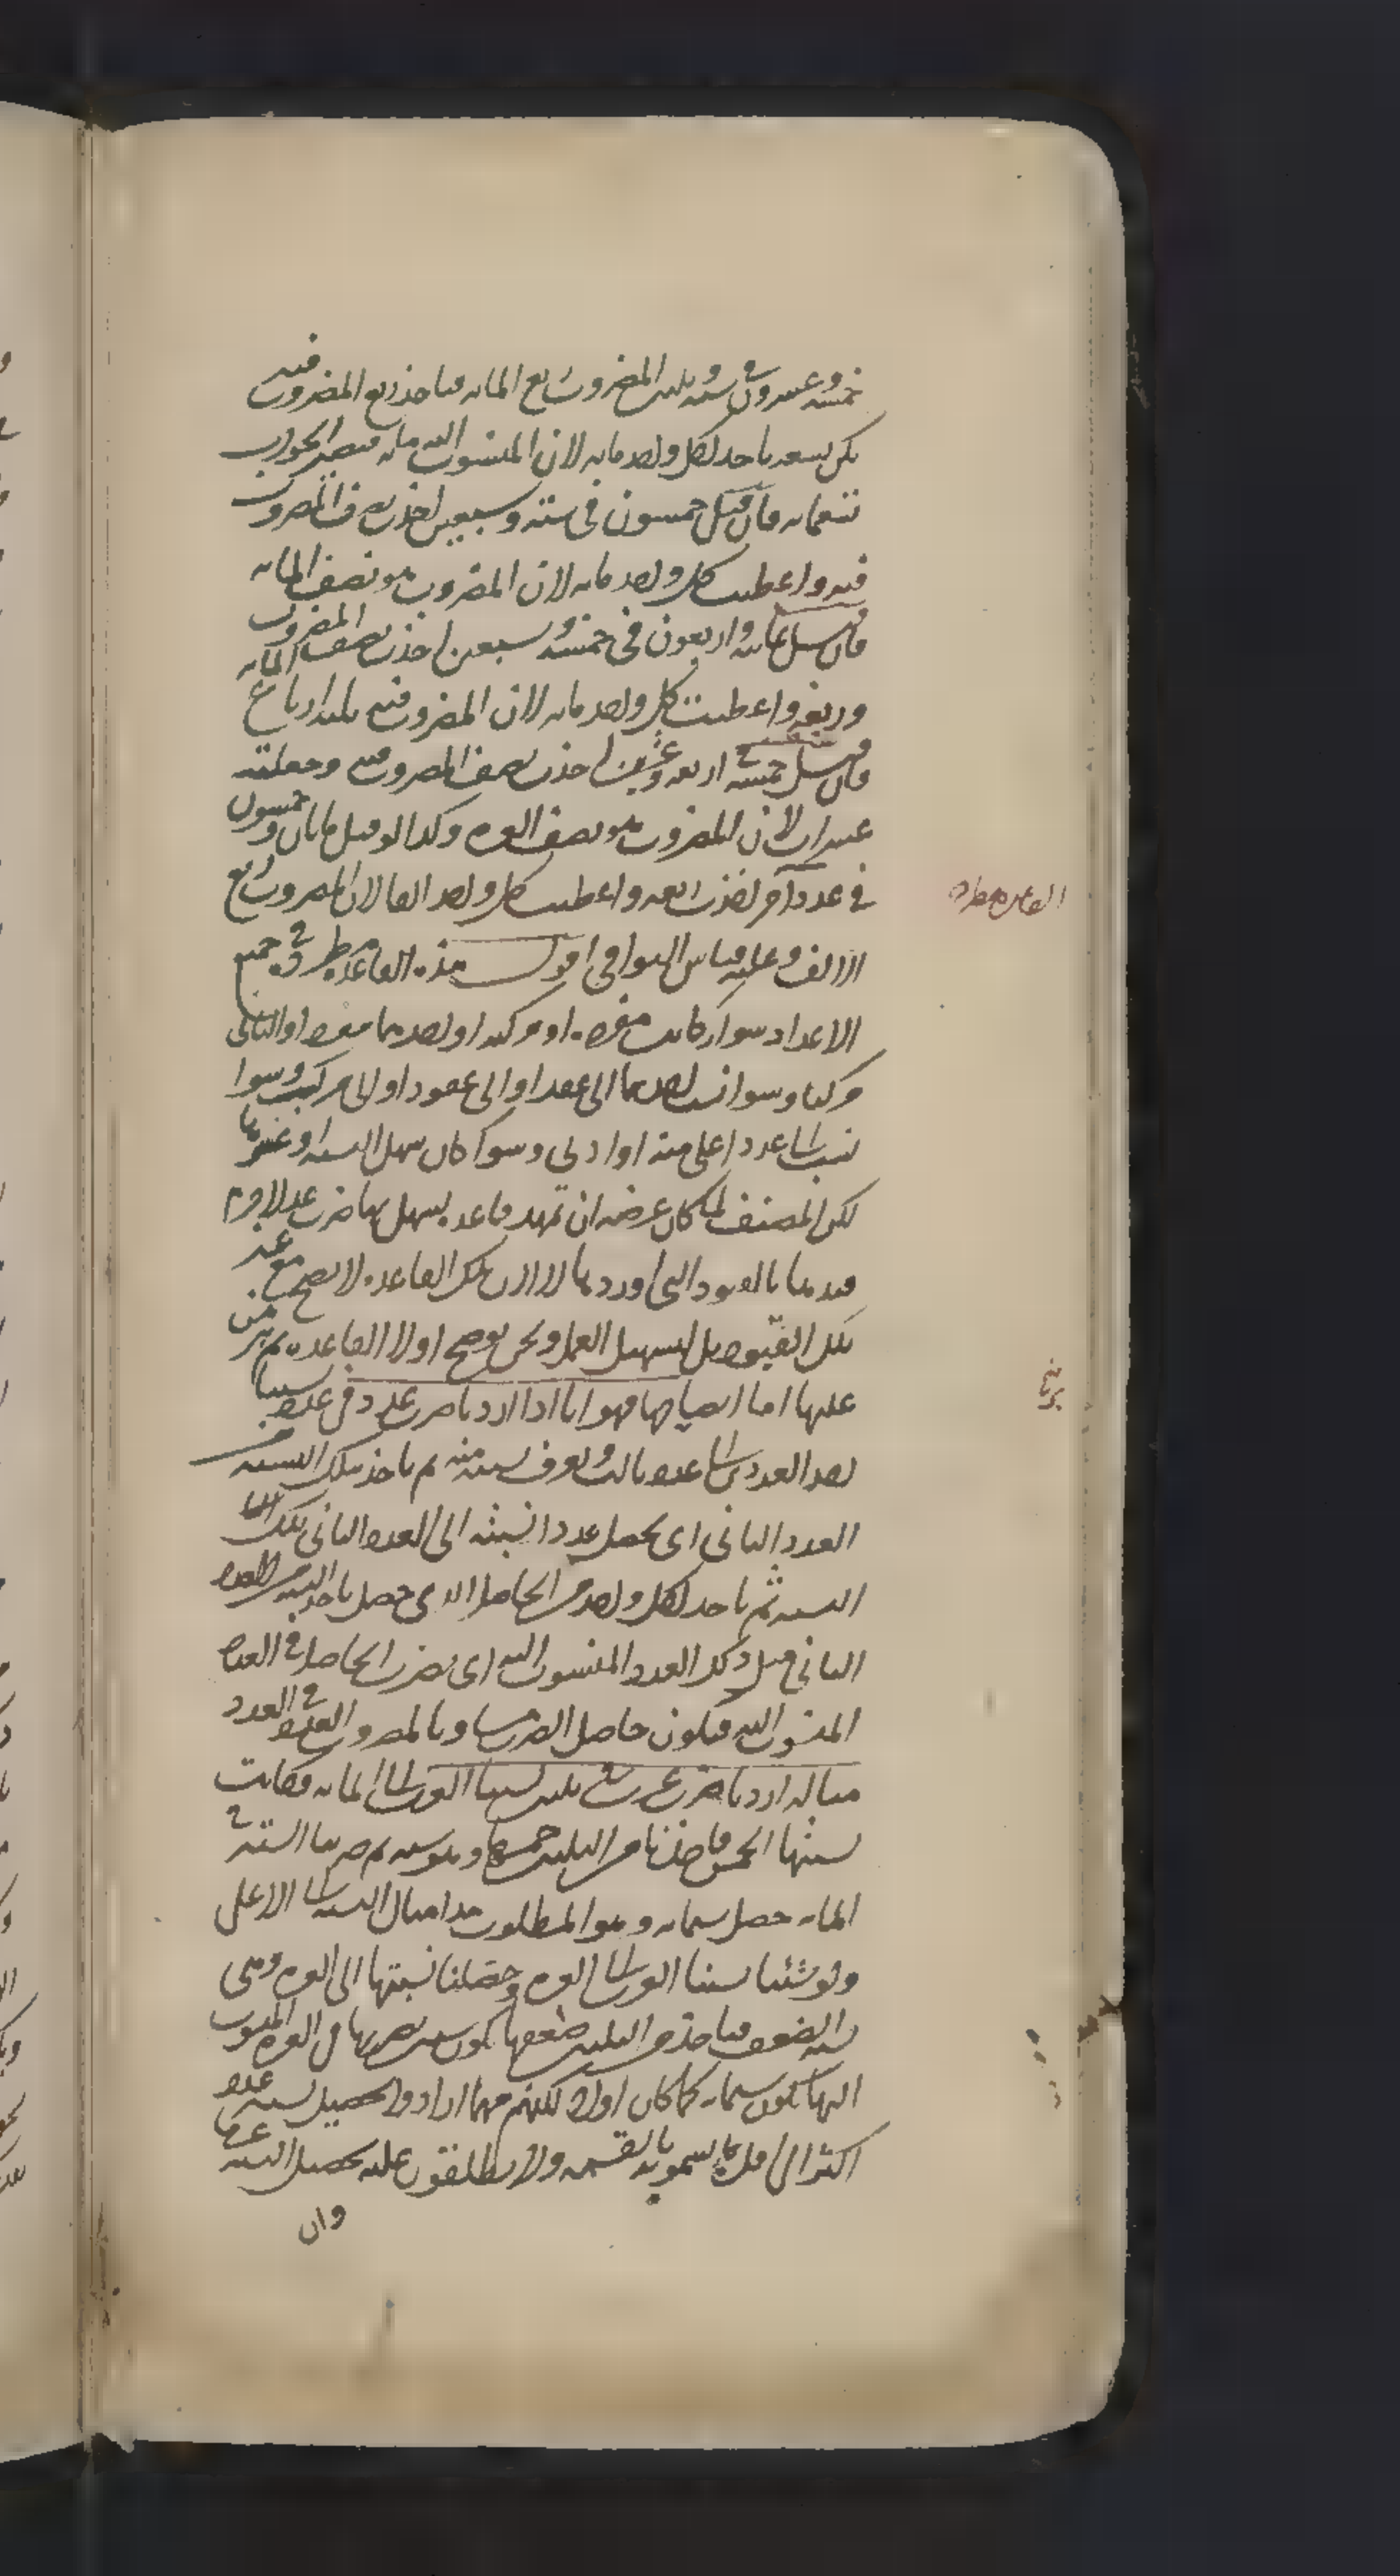 خمسة وعشرون في ستة وثلثين المضروب ربع المائة فناخذ ربع المضروب فيه
يكن تسعة ناخذ لكل واحد مائة لان المنسوب اليه مائة فيصير الجواب
تسعمائة فان قيل خمسون في ستة وسبعين اخذت نصف المضروب
فيه واعطيت كل واحد مائة لان المضروب هو نصف المائة
فان قيل ثمانية واربعون في خمسة وسبعين اخذت نصف المضروب
وربعه واعطيت كل واحد مائة لان المضروب فيه ثلثة ارباع المائة
فان قيل خمسة في اربعة وعشرين اخذت نصف المضروب فيه وجعلته
عشرات لان المضروب هو نصف العشرة وكذا لو قيل مائتان وخمسون
في عدد آخر اخذت ربعه واعطيت كل واحد الفا لان المضروب ربع
الالف وعليه قياس البواقي اقول هذه القاعدة مطردة في جميع
الاعداد سواء كانت مفردة او مركبة او احدهما مفردا والثاني
مركبا وسواء نسب احدهما الى عقد او الى عقود او الى مركب وسواء
نسب الى عدد اعلى منه او ادنى وسواء كان سهل النسبة او عسرها
لكن المصنف لما كان غرضه ان تمهد قاعدة يسهل بها ضرب عدد لا جرم
قيدها بالقيود التي اوردها لا لان تلك القاعدة لا تصح مع غير
تلك القيود بل لتسهيل العمل ونحن نوضح اولا القاعدة ثم نبرهن
عليها اما ايضاحها فهو انا اذا اردنا ضرب عدد في عدد نسبنا
احد العددين الى عدد ثالث ونعرف نسبته منه ثم ناخذ بتلك النسبة من
العدد الثاني اي نحصل عددا نسبته الى العدد الثاني تلك
النسبة ثم ناخذ لكل واحد من الحاصل الذي حصل باخذ النسبة من العدد
الثاني مثل ذلك العدد المنسوب اليه اي نضرب الحاصل في العدد
المنسوب اليه فيكون حاصل الضرب مساويا لمضروب العدد في العدد
مثاله اردنا ضرب عشرين في ثلثين نسبنا العشرين الى المائة فكانت
نسبتها الخمس فاخذنا من الثلثين خمسها وهو ستة ثم ضربنا الستة في
المائة حصل ستمائة وهو المطلوب هذا مثال النسبة الى الاعلى
ولو شئنا نسبنا العشرين الى العشرة وحصلنا نسبتها الى العشرة وهي
نسبة الضعف فناخذ من الثلثين ضعفها يكون ستين نضربها في العشرة المنسوب
اليها يكون ستمائة كما كان اولا لكنهم مهما ارادوا تحصيل نسبة عدد
اكثر الى اقل يسمونه بالقسمة ولا يطلقون عليه تحصيل النسبة
وان
القاعدة مطردة
برهانه